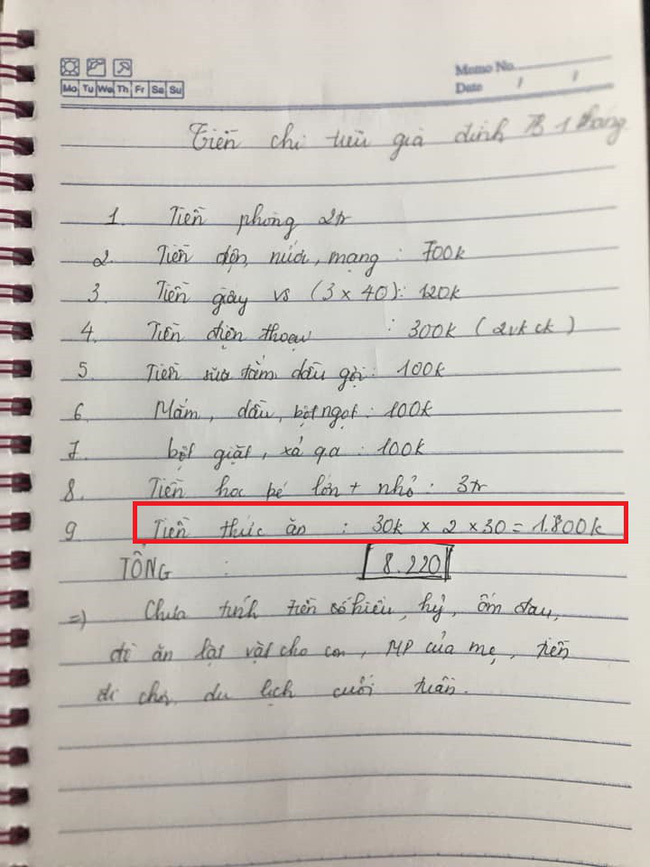 Memo No.
Mo Tu We Th Fr Sa Su
Date / /
Tiền chi tiêu gia đình 1 tháng
1. Tiền phòng 2tr
2. Tiền điện, nước, mạng : 700k
3 Tiền giấy vs (3 x 40): 120k
4. Tiền điện thoại : 300k (2vk ck)
5 Tiền sữa tắm, dầu gội : 100k
6 Mắm, dầu, bột ngọt : 100k
7. bột giặt, xả q.a : 100k
8. Tiền học bé lớn + nhỏ : 3tr
9 Tiền thức ăn : 30k x 2 x 30 = 1.800k
TỔNG : 8.220
=) Chưa tính tiền có hiếu, hỷ, ốm đau,
đi ăn lặt vặt cho con, MP của mẹ, tiền
đi chơi, du lịch cuối tuần.